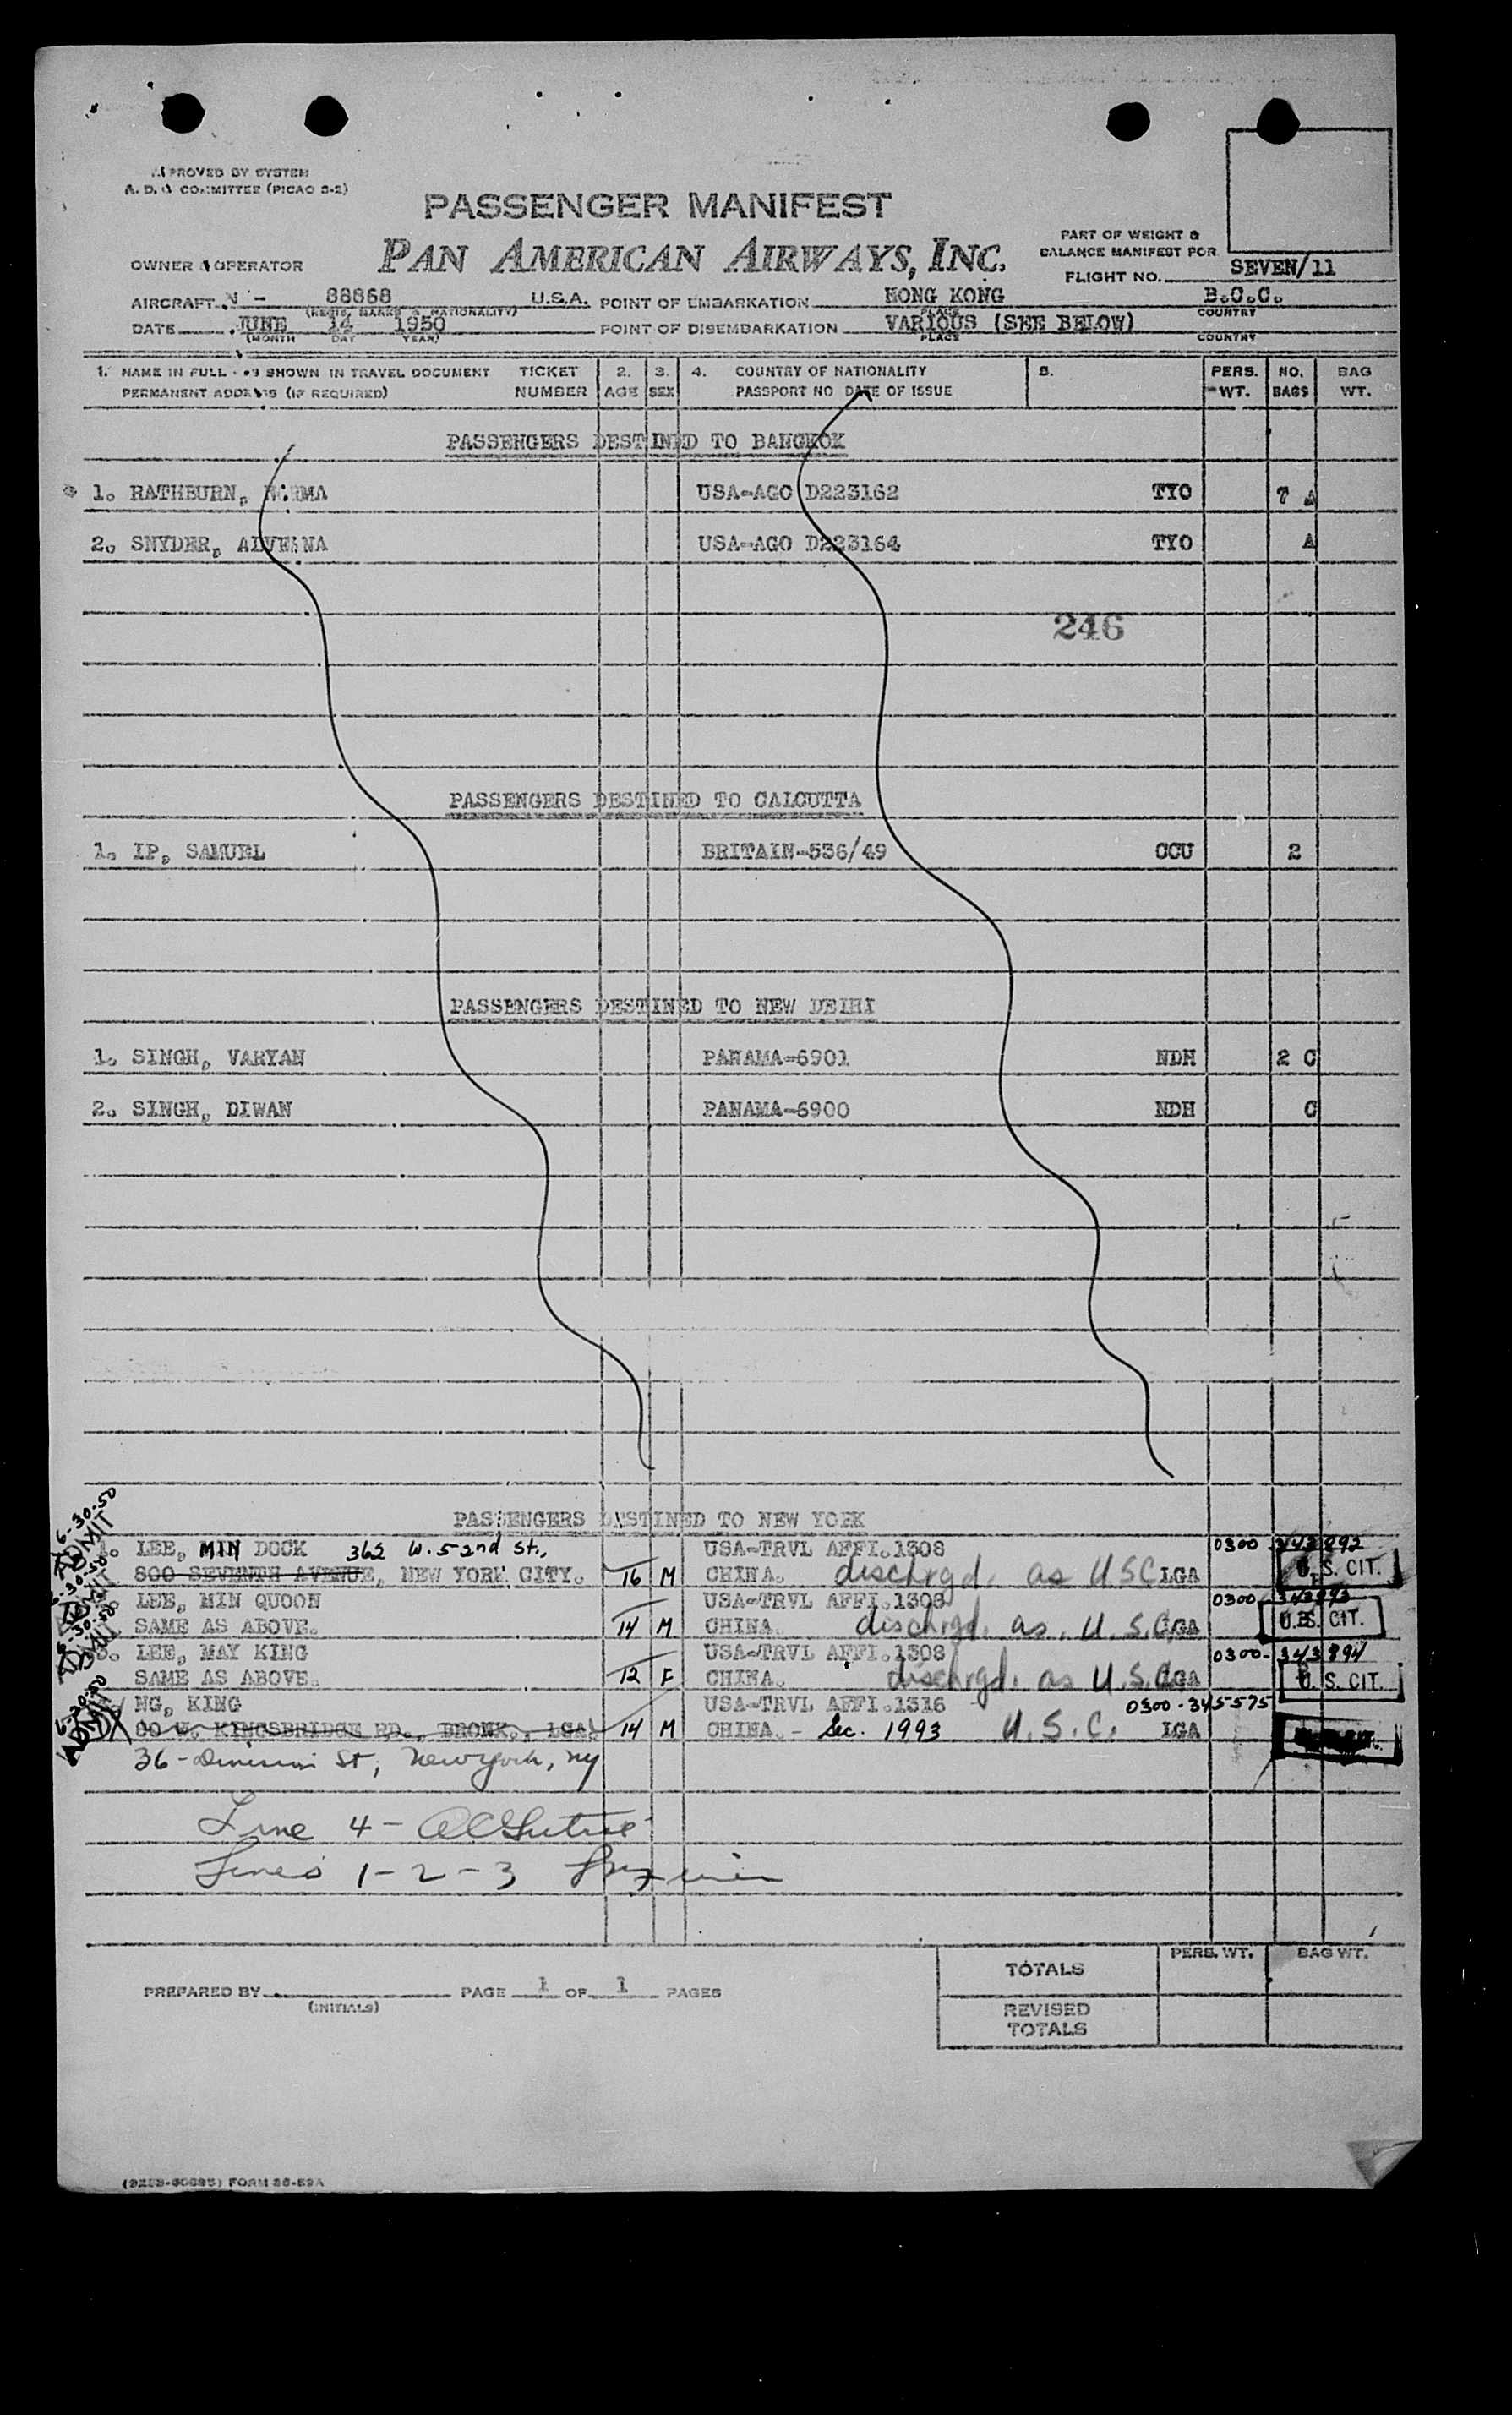 APPROVED BY SYSTEM
A. D. Q COMMITTEE (PICAO S-2)
PASSENGER MANIFEST
PAN AMERICAN AIRWAYS, INC.
PART OF WEIGHT &
BALANCE MANIFEST FOR
OWNER OPERATOR
FLIGHT NO. SEVEN/11
AIRCRAFT N - 88868 U.S.A. POINT OF EMBARKATION HONG KONG B.C.C.
(REGIS. MARKS & NATIONALITY) PLACE COUNTRY
DATE JUNE 14 1950 POINT OF DISEMBARKATION VARIOUS (SEE BELOW)
(MONTH DAY YEAR) PLACE COUNTRY
1. NAME IN FULL AS SHOWN IN TRAVEL DOCUMENT TICKET 2. 3. 4. COUNTRY OF NATIONALITY 5. PERS. NO. BAG
PERMANENT ADDRESS (IF REQUIRED) NUMBER AGE SEX PASSPORT NO DATE OF ISSUE WT. BAGS WT.
PASSENGERS DESTINED TO BANGKOK
1. RATHBURN, NORMA USA-AGO D223162 TYO 7 A
2. SNYDER, USA-AGO D223164 TYO A
246
PASSENGERS DESTINED TO CALCUTTA
1. IP, SAMUEL BRITAIN-536/49 CCU 2
PASSENGERS DESTINED TO NEW DELHI
1. SINGH, VARYAN PANAMA-6901 NDH 2 C
2. SINGH, DIWAN PANAMA-6900 NDH C
PASSENGERS DESTINED TO NEW YORK
6-30-50 ADMIT
1. LEE, MIN DOCK 362 W. 52nd St., USA-TRVL AFFI.1308 0300 343892
800 SEVENTH AVENUE, NEW YORK CITY. 16 M CHINA. dischrgd. as USC LGA U.S. CIT.
LEE, MIN QUOON USA-TRVL AFFI.1308 0300 343893
SAME AS ABOVE. 14 M CHINA dischrgd. as. U.S.C. LGA U.S. CIT.
3. LEE, MAY KING USA-TRVL AFFI.1308 0300- 343894
SAME AS ABOVE. 12 F CHINA. dischrgd. as U.S.C. LGA U.S. CIT.
6-30-50 ADMIT
NG, KING USA-TRVL AFFI.1316 0300-345575
80 W. KINGSBRIDGE RD., BRONX., 14 M CHINA. - Sec. 1993 U.S.C. LGA
36 - Division St, New York, NY
Line 4 -
Lines 1-2-3
PERS. WT. BAG WT.
TOTALS
PREPARED BY PAGE 1 OF 1 PAGES
(INITIALS)
REVISED
TOTALS